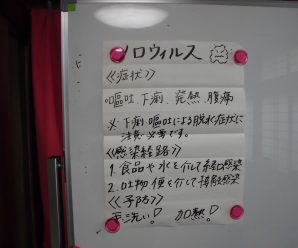 ノロウィルス
《症状》
嘔吐、下痢、発熱、腹痛
※下痢、嘔吐による脱水症状に
注意必要です。
《感染経路》
1.食品や水を介して経口感染
2.吐物、便を介して接触感染
《予防》
手洗い! 加熱!